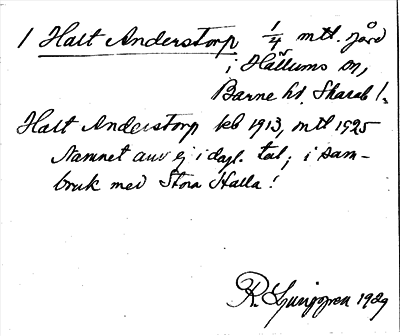 1 Halt Anderstorp 1/4 mtl. jård
i Hällums sn,
Barne hd. Skarab l.
Halt Anderstorp kb 1913, mtl 1925
Namnet anv ej i dagl. tal; i sam-
bruk med Stora Halla!
R. Ljunggren 1929